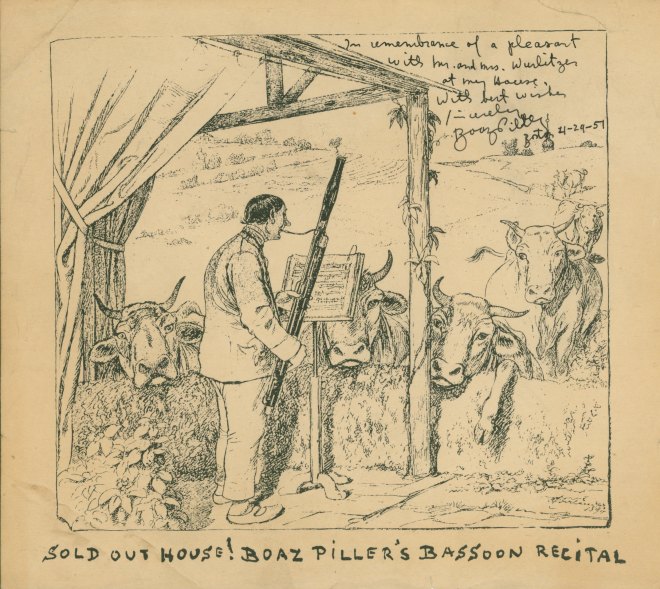 In remembrance of a pleasant
with Mr. and Mrs. Wurlitzer
at my House.
With best wishes
Sincerely
Boaz Piller
4-29-51
SOLD OUT HOUSE! BOAZ PILLER'S BASSOON RECITAL